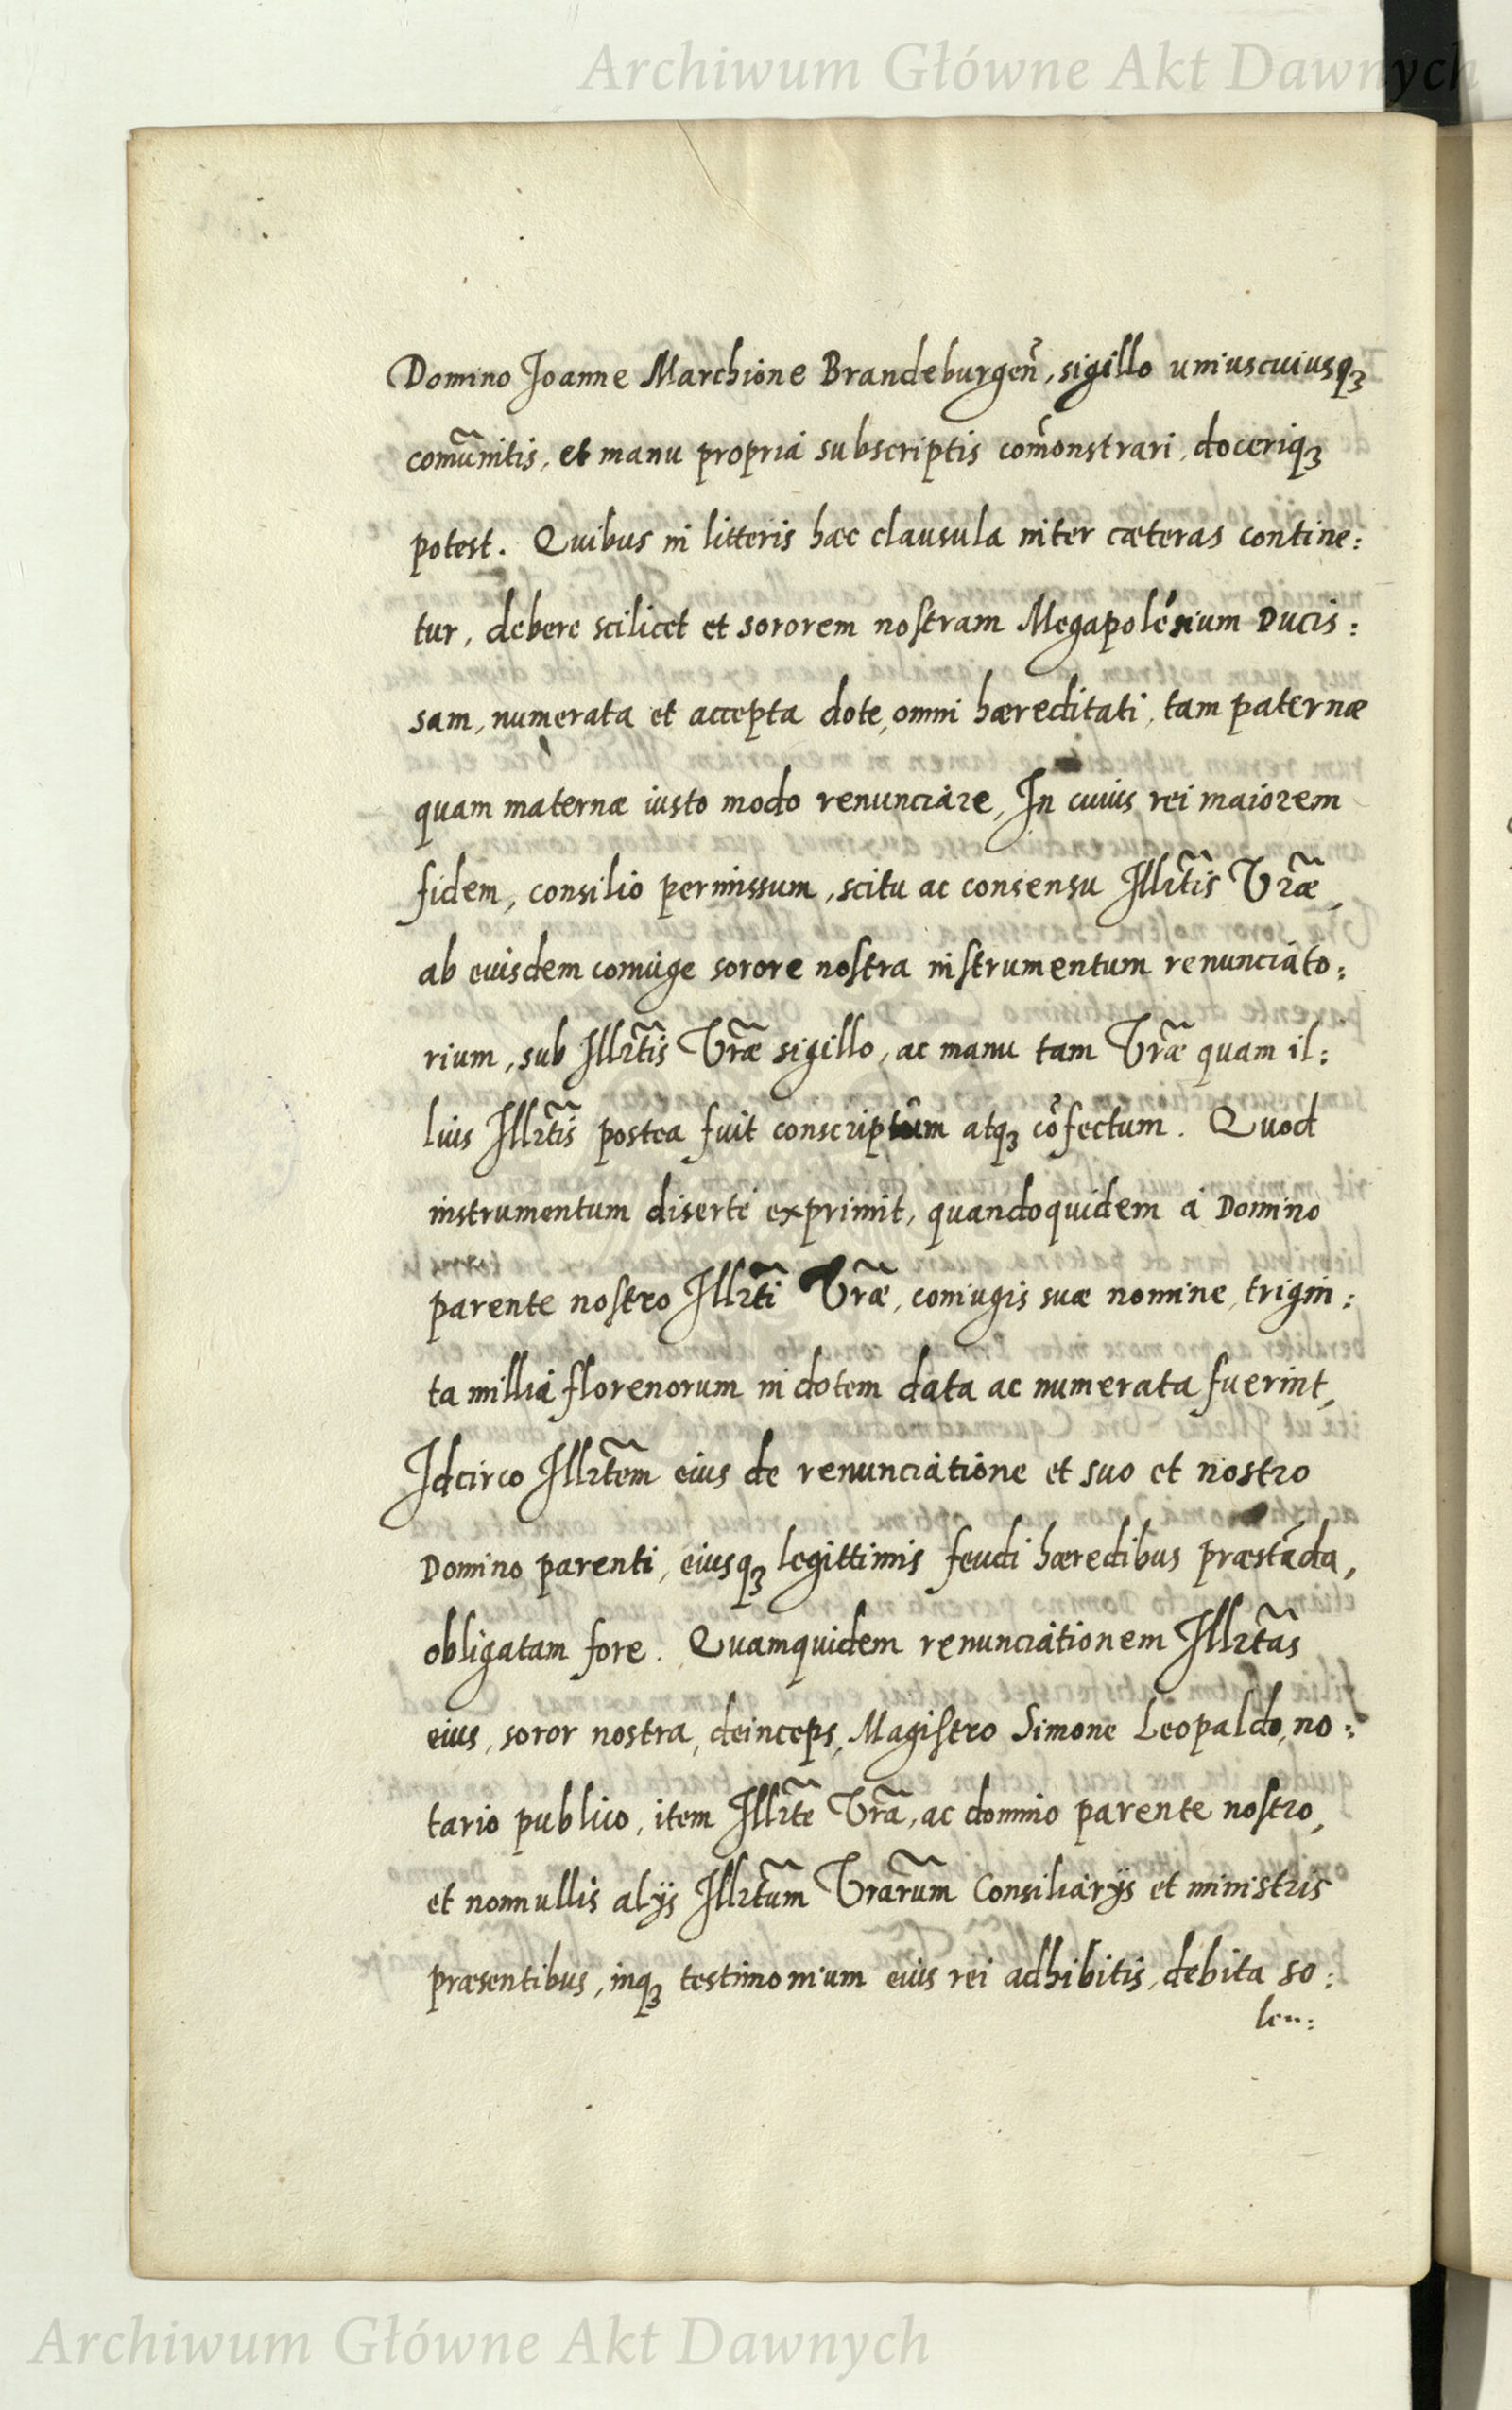 Archiwum Główne Akt Dawnych
Domino Joanne Marchione Brandeburgeñ, sigillo uniuscuiusqꝫ
comũnitis, et manu propria subscriptis com̃onstrari, doceriqꝫ
potest. Quibus in litteris hæc clausula inter cæteras contine:
tur, debere scilicet et sororem nostram Megapolẽsium Ducis:
sam, numerata et accepta dote, omni hæreditati, tam paternæ
quam maternæ iusto modo renunciare, In cuius rei maiorem
fidem, consilio permissum, scitu ac consensu Illr̃tis Vr̃æ,
ab euisdem coniuge sorore nostra instrumentum renunciato:
rium, sub Illr̃tis Vr̃æ sigillo, ac manu tam Vr̃æ quam il:
luis Illr̃tis postea fuit conscriptum atqꝫ cõfectum. Quod
instrumentum diserté exprimit, quandoquidem à Domino
parente nostro Illr̃ti Vr̃æ, coniugis suæ nomine, trigin:
ta millia florenorum in dotem data ac numerata fuerint,
Idcirco Illr̃tem eius de renunciatione et suo et nostro
Domino parenti, eiusqꝫ legittimis feudi hæredibus præstãda,
obligatam fore. Quamquidem renunciationem Illr̃tas
eius, soror nostra, deinceps, Magistro Simone Leopaldo, no:
tario publico, item Illr̃te Vr̃a, ac domino parente nostro,
et nonnullis alijs Illr̃tum Vr̃arum Consiliarijs et ministris
præsentibus, inqꝫ testimonium euis rei adhibitis, debita so:
len:
Archiwum Główne Akt Dawnych